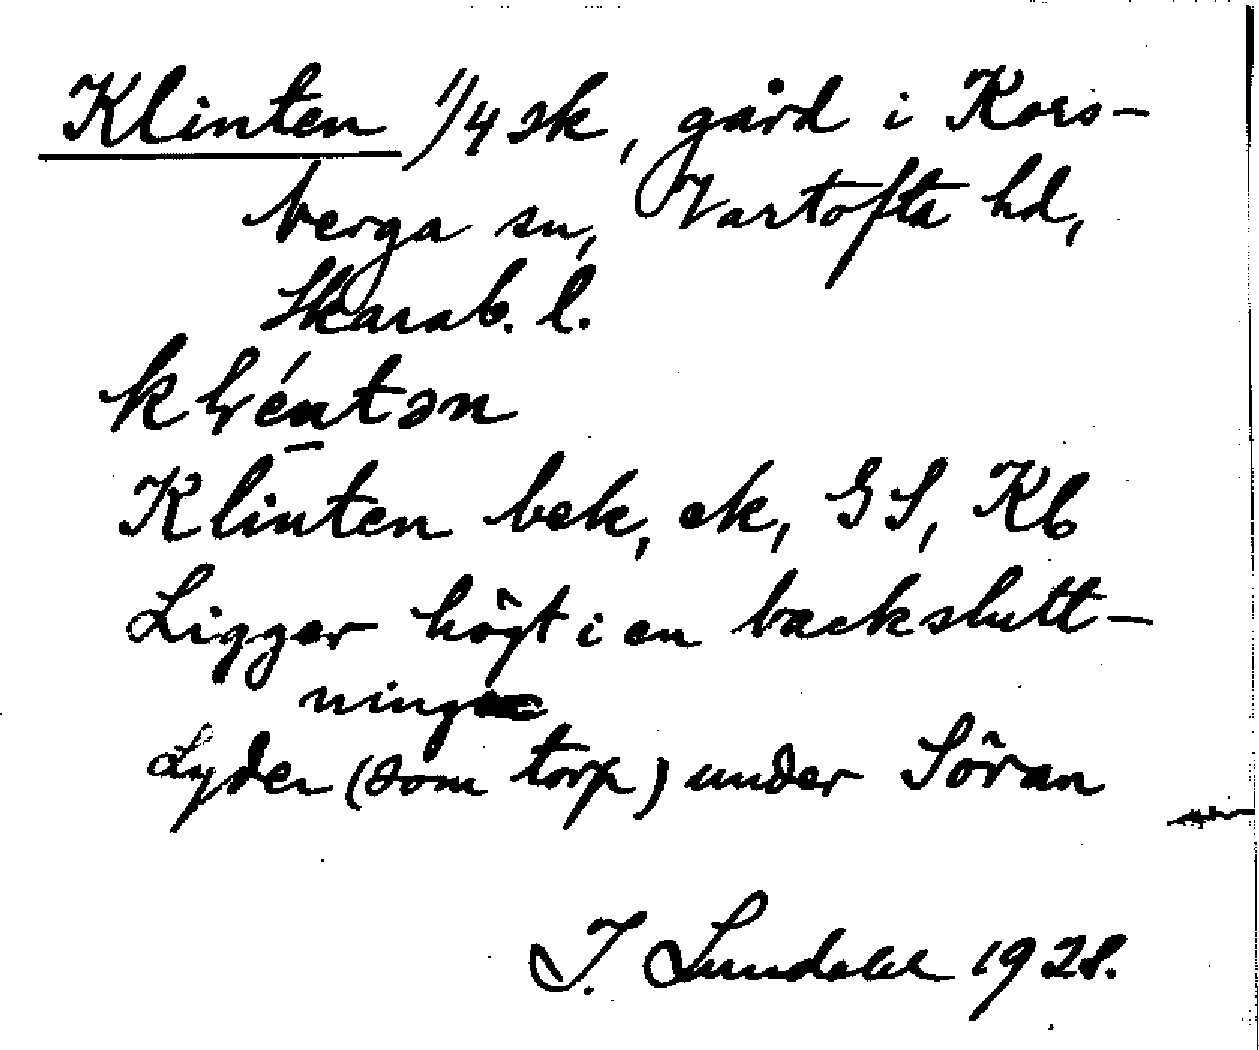 Klinten 1/4 sk, gård i Kors-
berga sn, Vartofta hd,
Skarab. l.
klińtən
Klinten bek, ek, GS, Kb
Ligger högt i en backslutt-
ning
Lyder (som torp) under Söran
I. Lundahl 1928.